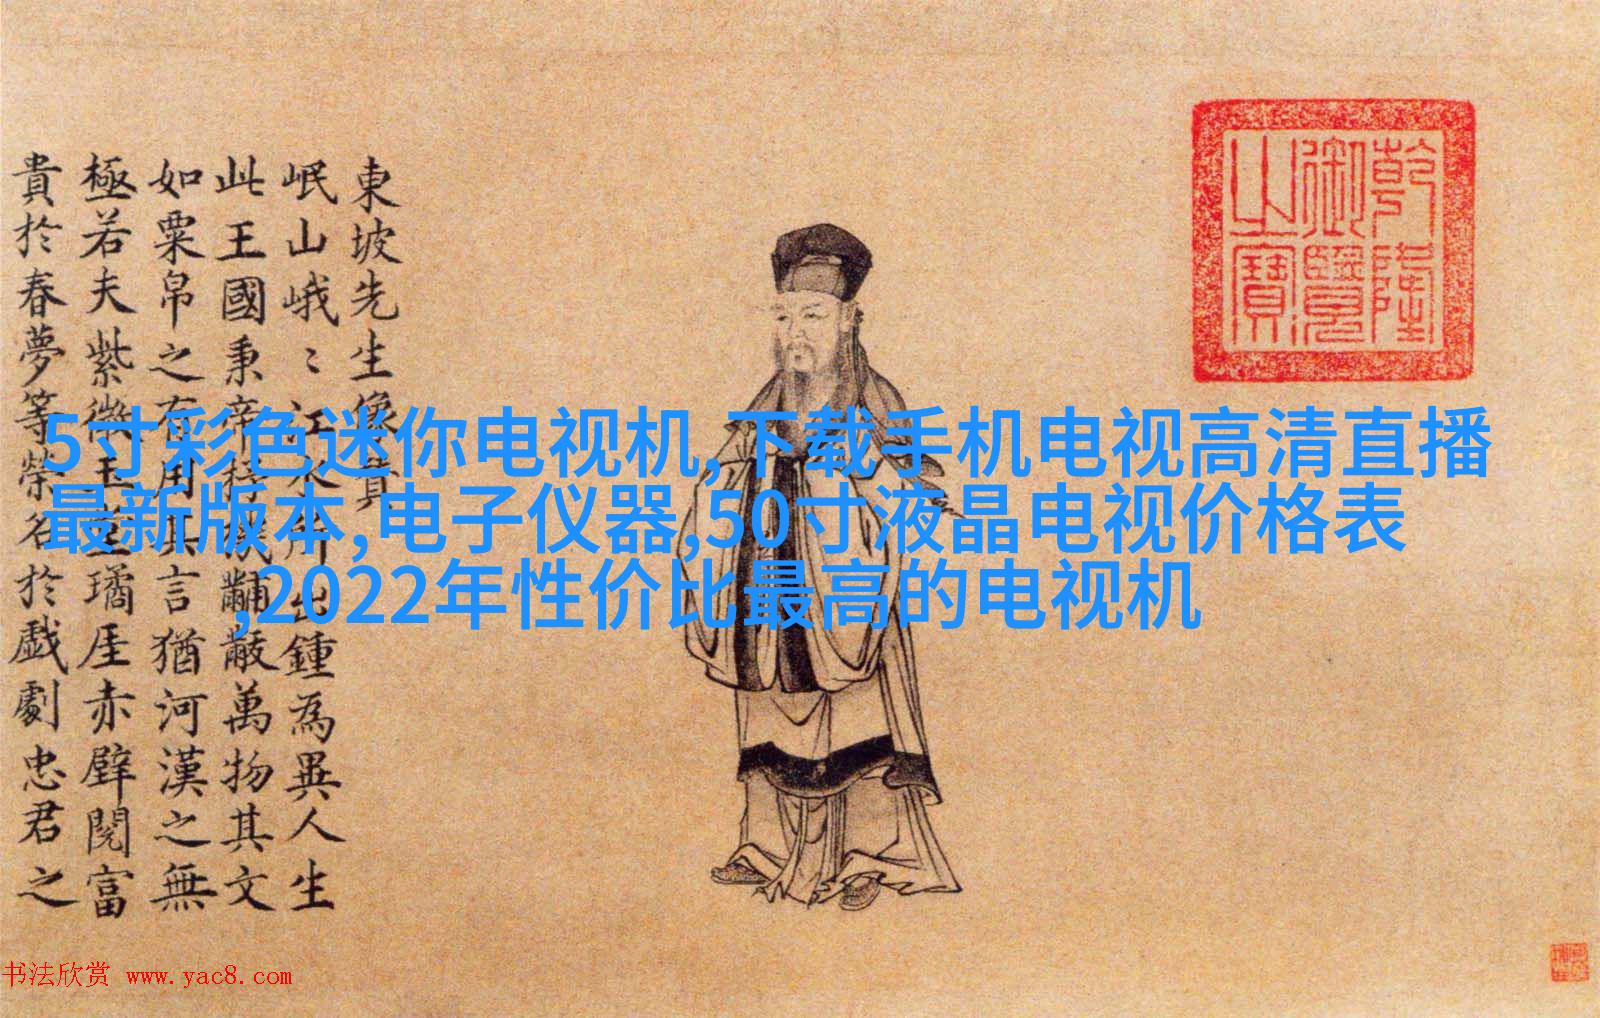 東坡先生像贊
岷山峨〻江水所出鍾為異人生
此王國秉帝機黼黻萬物其文
如粟帛之有用其言猶河漢之無
極若夫紫微玉堂璚厓赤壁閱富
貴於春夢等榮名於戲劇忠君之
乾隆
御覽
之寶
5寸彩色迷你电视机,下载手机电视高清直播
最新版本,电子仪器,50寸液晶电视价格表
,2022年性价比最高的电视机
书法欣赏 www.yac8.com